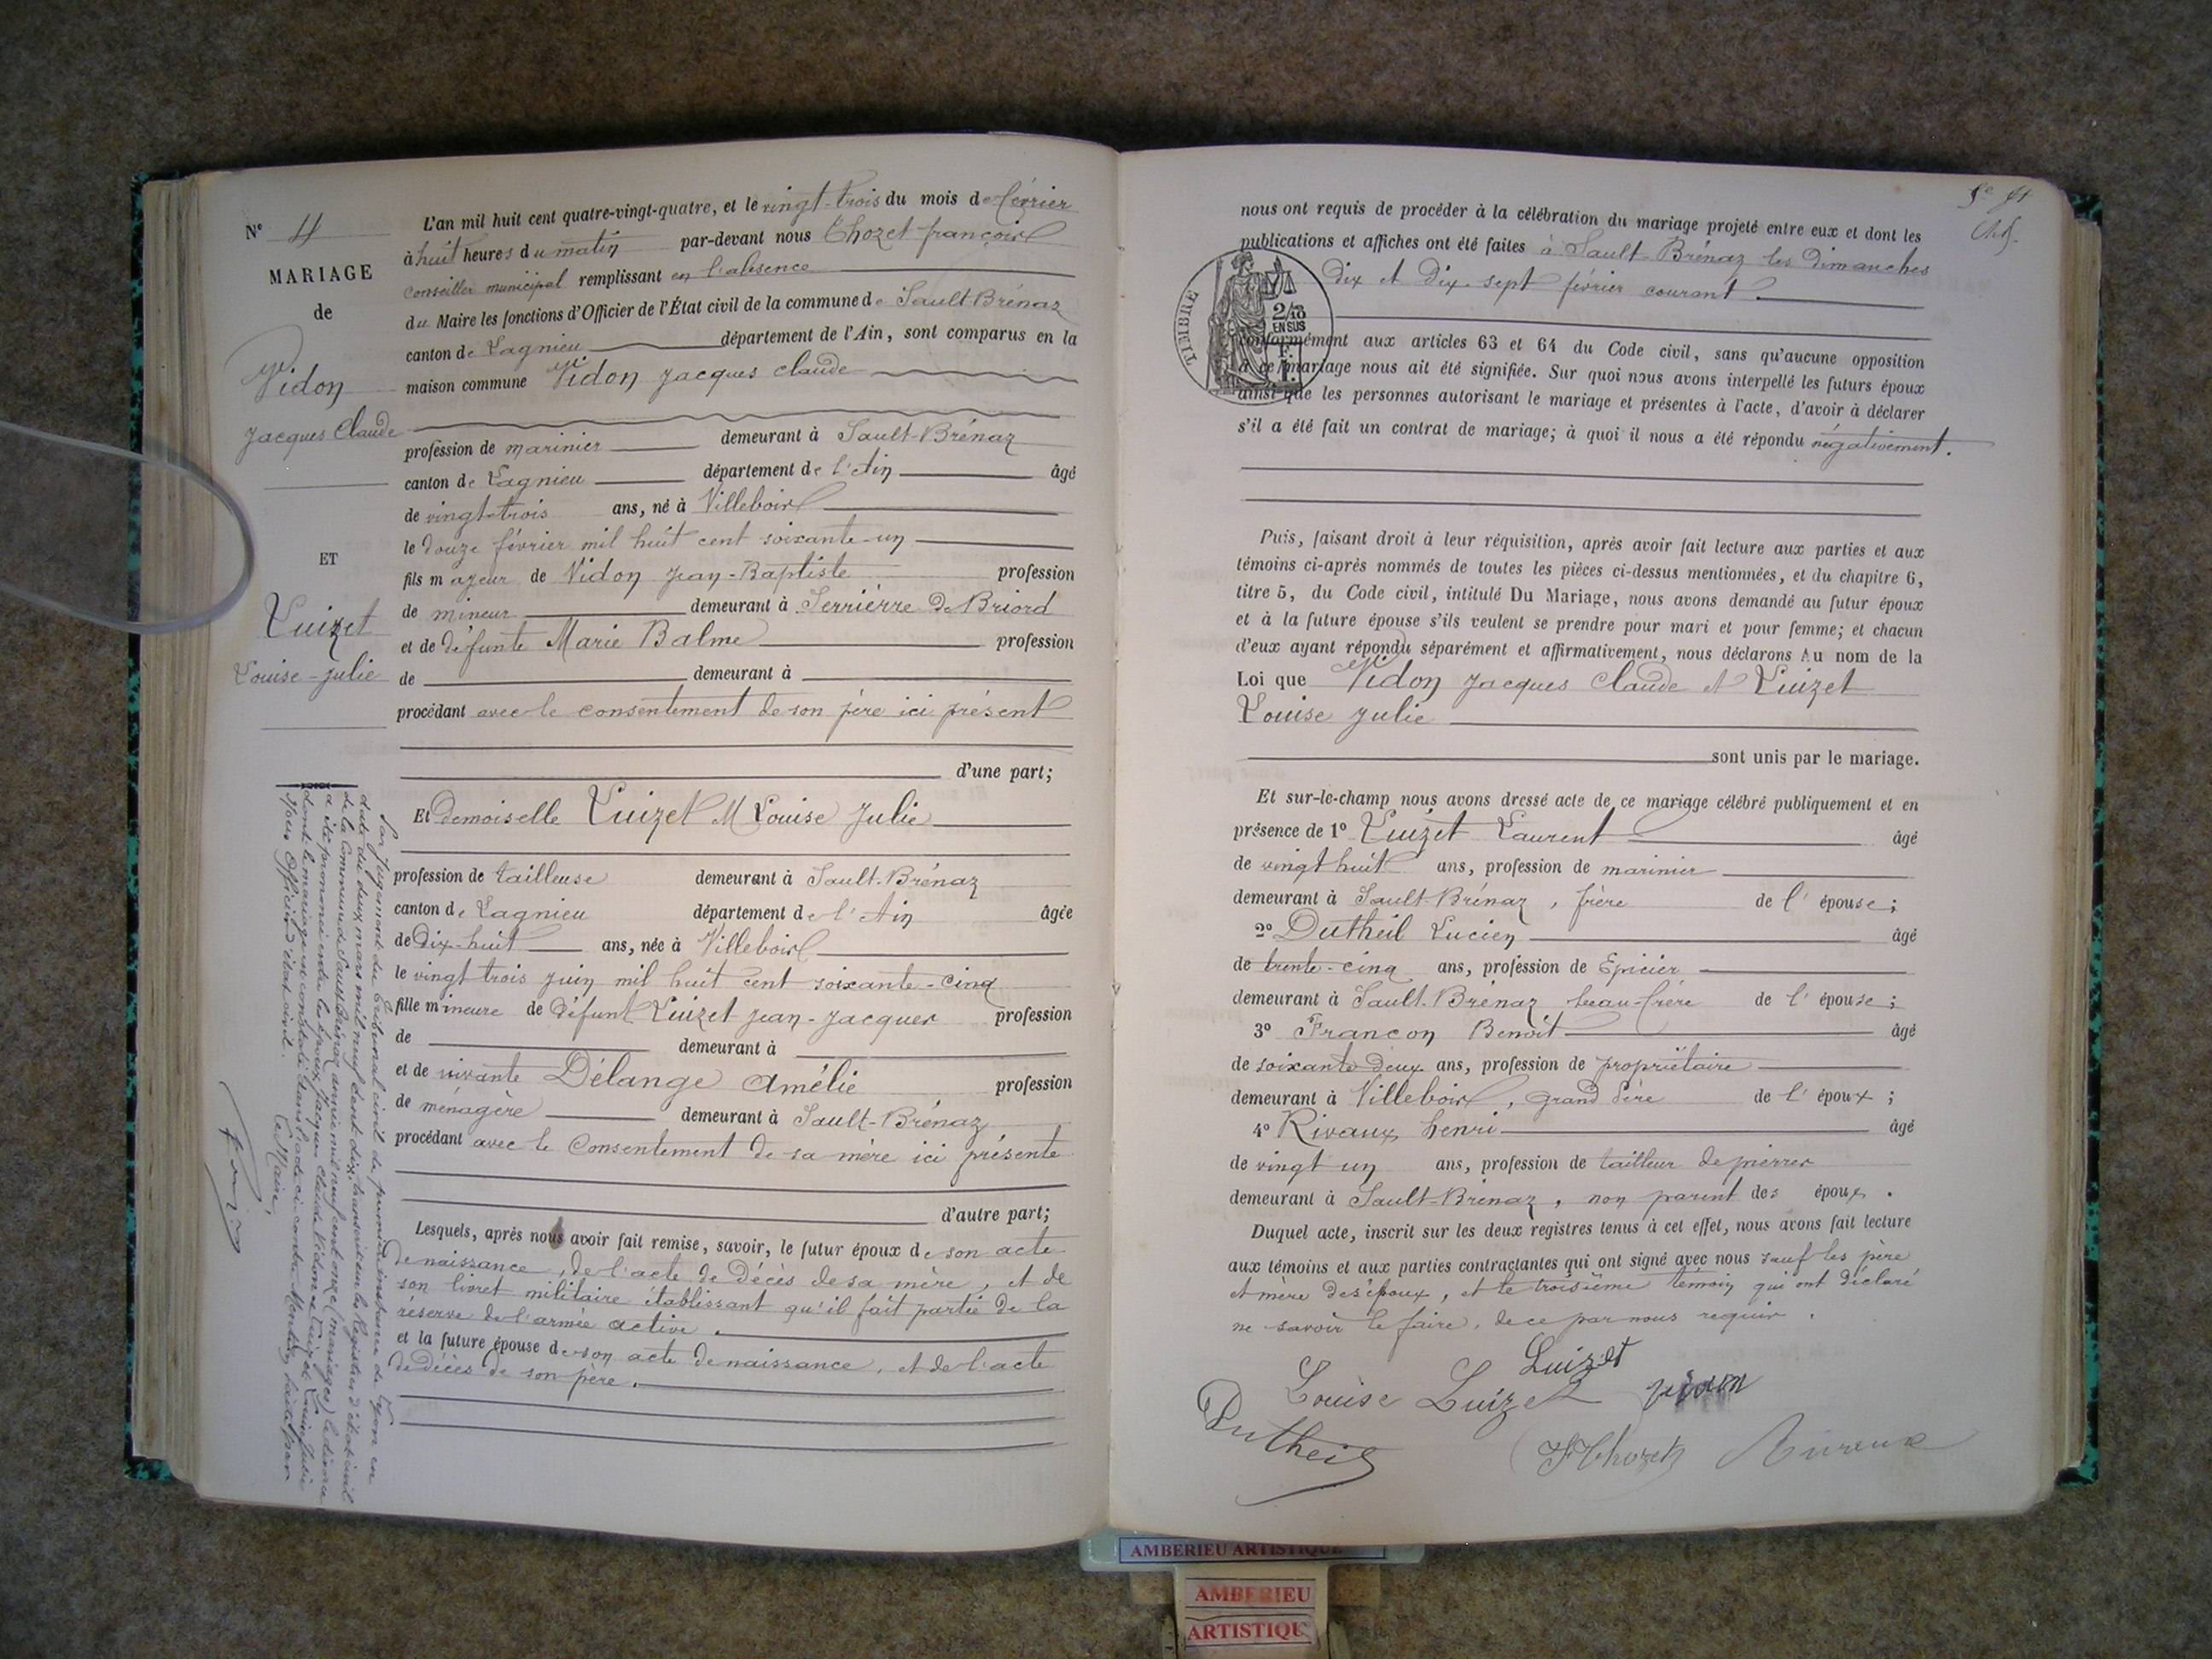 N° 4
MARIAGE
de
Vidon
Jacques Claude
ET
Luizet
Louise-Julie
L'an mil huit cent quatre-vingt-quatre, et le vingt-trois du mois de février
à huit heures du matin par-devant nous Chozet françois
conseiller municipal remplissant en l'absence
du Maire les fonctions d'Officier de l'État civil de la commune de Sault-Brénaz
canton de Lagnieu département de l'Ain, sont comparus en la
maison commune Vidon Jacques Claude
profession de marinier demeurant à Sault-Brénaz
canton de Lagnieu département de l'Ain âgé
de vingt-trois ans, né à Villebois
le douze février mil huit cent soixante-un
fils majeur de Vidon Jean-Baptiste profession
de mineur demeurant à Serrièrre de Briord
et de défunte Marie Balme profession
de demeurant à
procédant avec le consentement de son père ici présent
d'une part;
Et demoiselle Luizet M Louise Julie
profession de tailleuse demeurant à Sault-Brénaz
canton de Lagnieu département de l'Ain âgée
de dix-huit ans, née à Villebois
le vingt trois juin mil huit cent soixante-cinq
fille mineure de défunt Luizet Jean-Jacques profession
de demeurant à
et de vivante Délange Amélie profession
de ménagère demeurant à Sault-Brénaz
procédant avec le Consentement de sa mère ici présente
d'autre part;
Lesquels, après nous avoir fait remise, savoir, le futur époux de son acte
de naissance, de l'acte de décès de sa mère, et de
son livret militaire établissant qu'il fait partie de la
réserve de l'armée active.
et la future épouse de son acte de naissance, et de l'acte
de décès de son père.
Par jugement du tribunal civil de première instance de Lyon en
date du deux mars mil neuf cent dix, transcrit sur les Registres d'état civil
de la Commune de Sault-Brénaz, année mil neuf cent onze (mariages) le divorce
a été prononcé entre les époux Jacques Claude Vidon et Luizet Louise Julie
dont le mariage se constate dans l'acte ci-contre. Mention faite par
Nous Officier d'état civil.
Le Maire,
nous ont requis de procéder à la célébration du mariage projeté entre eux et dont les
publications et affiches ont été faites à Sault-Brénaz les dimanches
dix et dix-sept février courant.
TIMBRE
2/10
EN SUS
conformément aux articles 63 et 64 du Code civil, sans qu'aucune opposition
à ce mariage nous ait été signifiée. Sur quoi nous avons interpellé les futurs époux
ainsi que les personnes autorisant le mariage et présentes à l'acte, d'avoir à déclarer
s'il a été fait un contrat de mariage; à quoi il nous a été répondu négativement.
Puis, faisant droit à leur réquisition, après avoir fait lecture aux parties et aux
témoins ci-après nommés de toutes les pièces ci-dessus mentionnées, et du chapitre 6,
titre 5, du Code civil, intitulé Du Mariage, nous avons demandé au futur époux
et à la future épouse s'ils veulent se prendre pour mari et pour femme; et chacun
d'eux ayant répondu séparément et affirmativement, nous déclarons Au nom de la
Loi que Vidon Jacques Claude et Luizet
Louise Julie
sont unis par le mariage.
Et sur-le-champ nous avons dressé acte de ce mariage célébré publiquement et en
présence de 1° Luizet Laurent âgé
de vingt huit ans, profession de marinier
demeurant à Sault-Brénaz, frère de l'épouse;
2° Dutheil Lucien âgé
de trente-cinq ans, profession de Epicier
demeurant à Sault-Brénaz beau-frère de l'épouse;
3° Françon Benoit âgé
de soixante deux ans, profession de propriétaire
demeurant à Villebois, grand Père de l'époux;
4° Rivaux henri âgé
de vingt un ans, profession de tailleur de pierres
demeurant à Sault-Brénaz, non parent des époux.
Duquel acte, inscrit sur les deux registres tenus à cet effet, nous avons fait lecture
aux témoins et aux parties contractantes qui ont signé avec nous sauf les père
et mère des époux, et le troisième témoin qui ont déclaré
ne savoir le faire, de ce par nous requis.
Luizet
Louise Luizet vidon
Dutheil
FChozet Rivaux
AMBERIEU ARTISTIQUE
AMBERIEU
ARTISTIQU